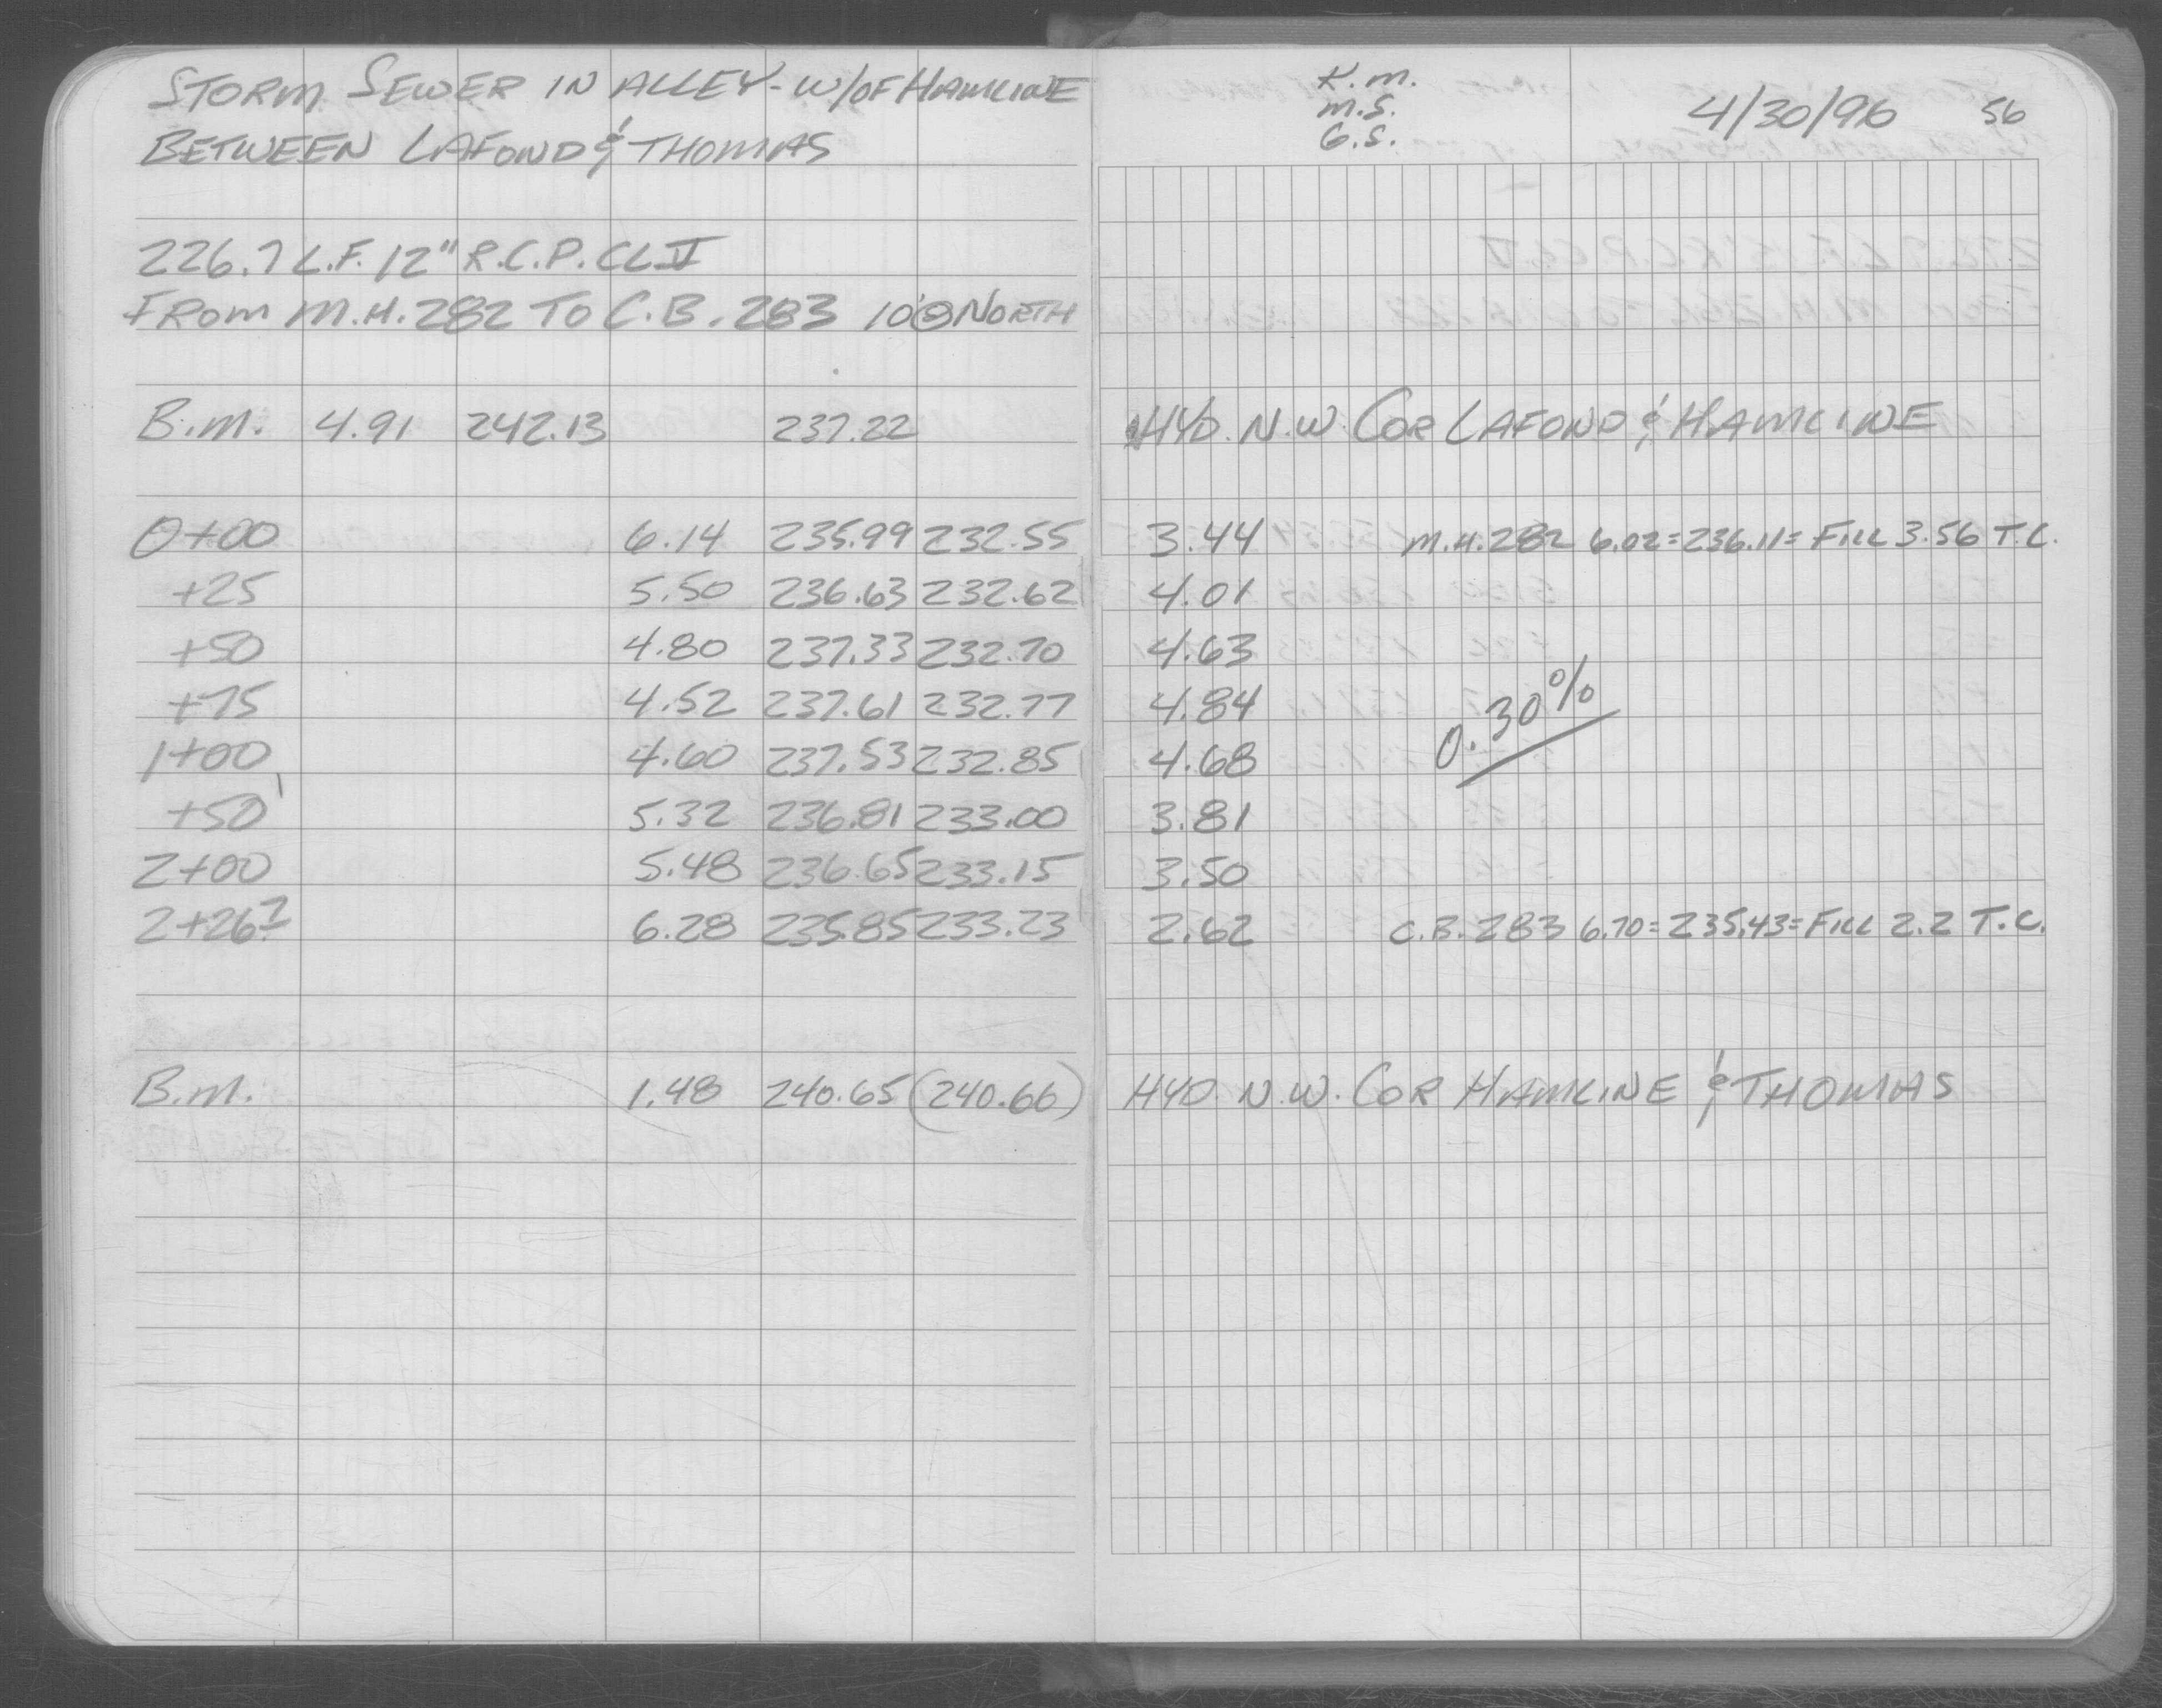 STORM SEWER IN ALLEY - W/OF HAMLINE
BETWEEN LAFOND & THOMAS
226.7 L.F. 12" R.C.P. CL V
FROM M.H. 282 TO C.B. 283 10' @ NORTH
B.M. 4.91 242.13 237.22
0+00 6.14 235.99 232.55
+25 5.50 236.63 232.62
+50 4.80 237.33 232.70
+75 4.52 237.61 232.77
1+00 4.60 237.53 232.85
+50 5.32 236.81 233.00
2+00 5.48 236.65 233.15
2+26.7 6.28 235.85 233.23
B.M. 1.48 240.65 (240.66)
K.M.
M.S.
G.S.
4/30/96 56
HYD. N.W. COR LAFOND & HAMLINE
3.44 M.H. 282 6.02 = 236.11 = FILL 3.56 T.C.
4.01
4.63
4.84
0.30%
4.68
3.81
3.50
2.62 C.B. 283 6.70 = 235.43 = FILL 2.2 T.C.
HYD. N.W. COR HAMLINE & THOMAS